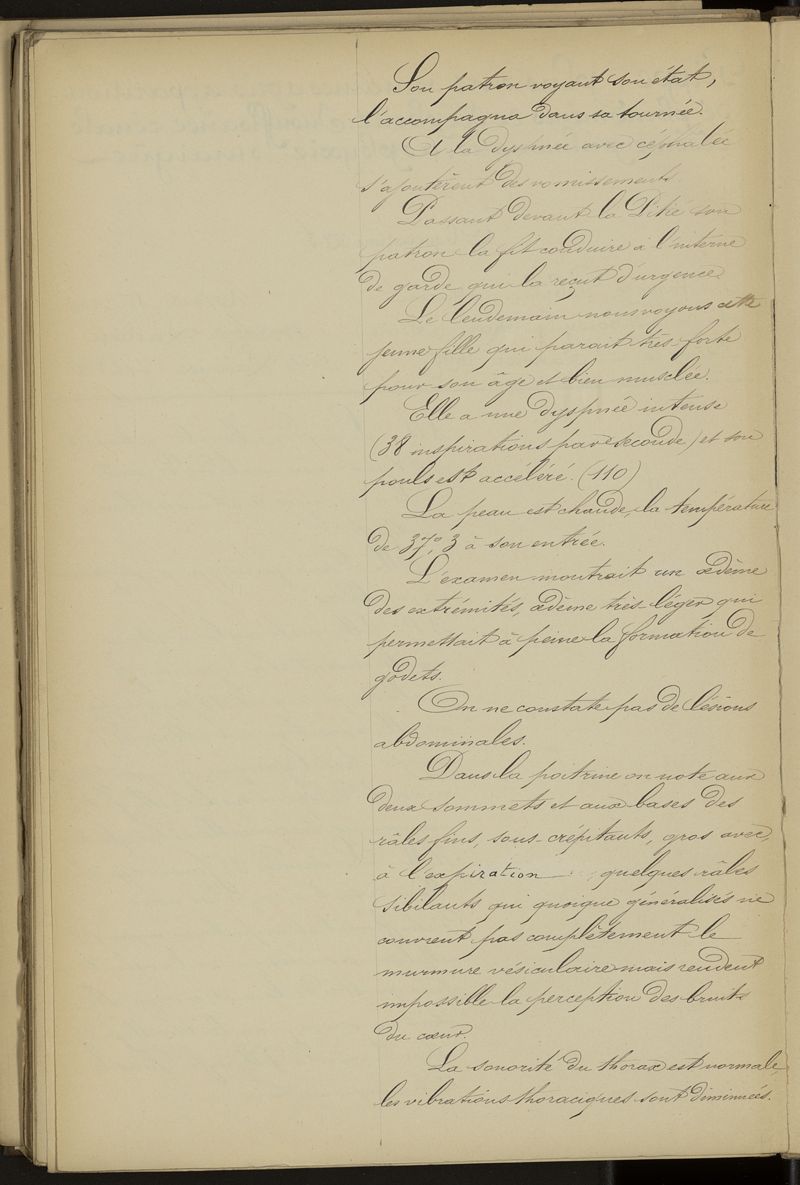 Son patron voyant son état,
l'accompagna dans sa tournée.
A la dyspnée avec céphalée
s'ajoutèrent des vomissements
Passant devant la Pitié son
patron la fit conduire à l'interne
de garde qui la reçut d'urgence.
Le lendemain nous voyons cette
jeune fille qui parait très forte
pour son âge et bien musclée.
Elle a une dyspnée intense
(38 inspirations par seconde) et son
pouls est accéléré. (110)
La peau est chaude, la température
de 37°,3 à son entrée.
L'examen montrait un œdème
des extrémités, œdème très léger qui
permettait à peine la formation de
godets.
On ne constate pas de lésions
abdominales.
Dans la poitrine on note aux
deux sommets et aux bases des
râles fins, sous-crépitants, gros avec,
à l'expiration quelques râles
sibilants qui quoique généralisés ne
couvrent pas complètement le
murmure vésiculaire mais rendent
impossible la perception des bruits
du cœur.
La sonorité du thorax est normale,
les vibrations thoraciques sont diminuées.